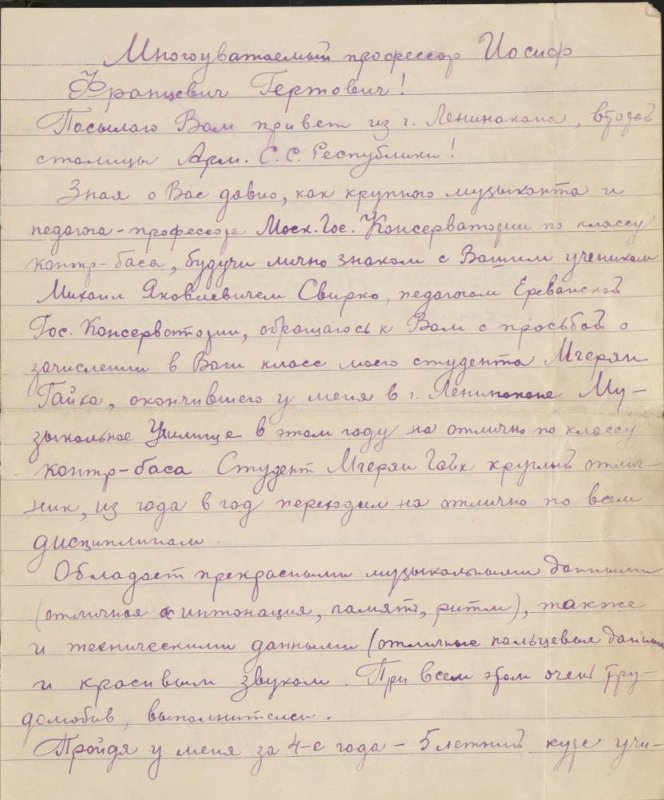 Многоуважаемый профессор Иосиф
Францевич Гертович!
Посылаю Вам привет из г. Ленинакана, второй
столицы Арм. С. С. Республики!
Зная о Вас давно, как крупного музыканта и
педагога - профессора Моск. Гос. Консерватории по классу
контр-баса, будучи лично знаком с Вашим учеником
Михаил Яковлевичем Свирко, педагогом Ереванской
Гос. Консерватории, обращаюсь к Вам с просьбой о
зачислении в Ваш класс моего студента Мгерян
Гайка, окончившего у меня в г. Ленинакане Му-
зыкальное Училище в этом году на отлично по классу
контр-баса. Студент Мгерян Гайк круглый отлич-
ник, из года в год переходил на отлично по всем
дисциплинам.
Обладает прекрасными музыкальными данными
(отличная интонация, память, ритм), также
и техническими данными (отличные пальцевые данные
и красивым звуком. При всем этом очень тру-
долюбив, выполнителен.
Пройдя у меня за 4-е года - 5 летний курс учи-